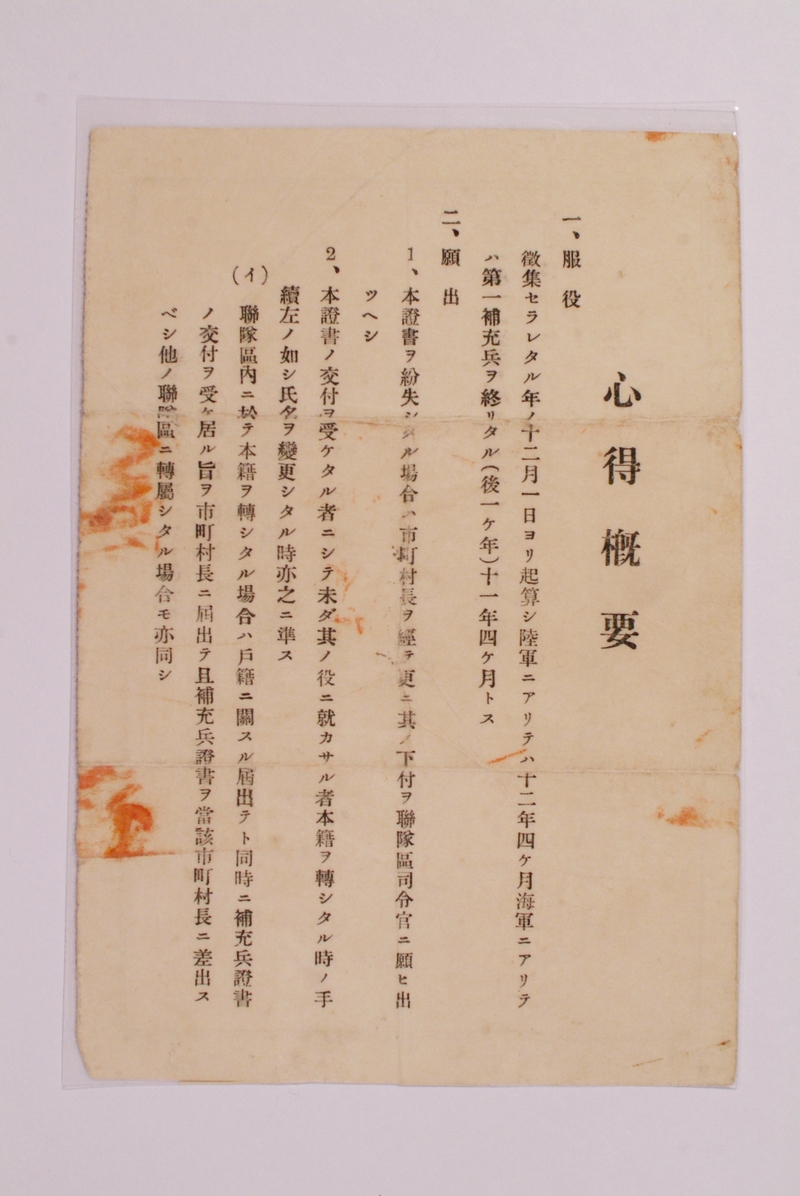 心得概要
一、服役
徵集セラレタル年ノ十二月一日ヨリ起算シ陸軍ニアリテハ十二年四ケ月海軍ニアリテ
ハ第一補充兵ヲ終リタル(後一ケ年)十一年四ケ月トス
二、願出
1、本證書ヲ紛失シタル場合ハ市町村長ヲ經テ更ニ其ノ下付ヲ聯隊區司令官ニ願ヒ出
ツヘシ
2、本證書ノ交付ヲ受ケタル者ニシテ未ダ其ノ役ニ就カサル者本籍ヲ轉シタル時ノ手
續左ノ如シ氏名ヲ變更シタル時亦之ニ準ス
(イ)聯隊區內ニ於テ本籍ヲ轉シタル場合ハ戶籍ニ關スル屆出テト同時ニ補充兵證書
ノ交付ヲ受ケ居ル旨ヲ市町村長ニ屆出テ且補充兵證書ヲ當該市町村長ニ差出ス
ベシ他ノ聯隊區ニ轉屬シタル場合モ亦同シ